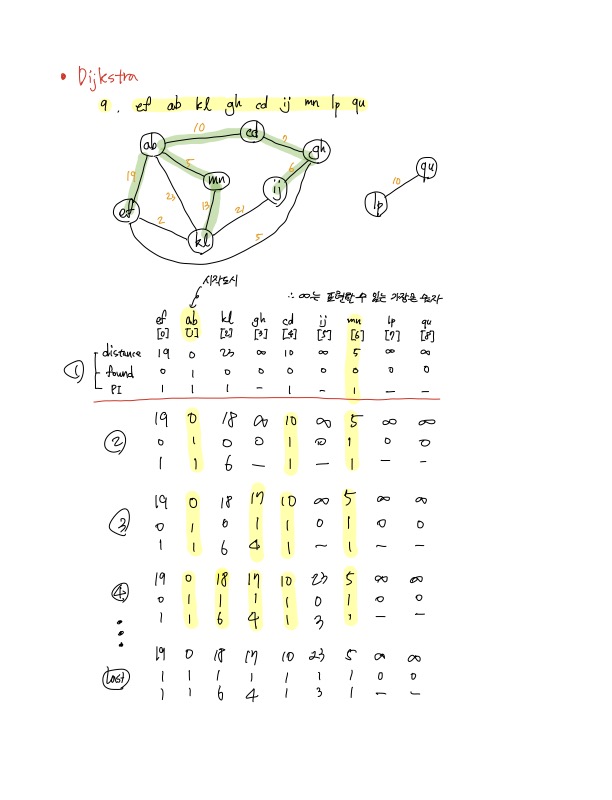 • Dijkstra
9. ef ab kl gh cd ij mn lp qu
10
cd
7
ab
gh
5
6
qu
19
mn
ij
10
23
13
lp
ef
2
21
kl
5
시작도시
∴ ∞는 표현할 수 있는 가장큰 숫자
ef ab kl gh cd ij mn lp qu
[0] [1] [2] [3] [4] [5] [6] [7] [8]
distance 19 0 23 ∞ 10 ∞ 5 ∞ ∞
① found 0 1 0 0 0 0 0 0 0
PI 1 1 1 - 1 - 1 - -
19 0 18 ∞ 10 ∞ 5 ∞ ∞
② 0 1 0 0 1 0 1 0 0
1 1 6 - 1 - 1 - -
19 0 18 17 10 ∞ 5 ∞ ∞
③ 0 1 0 1 1 0 1 0 0
1 1 6 4 1 - 1 - -
19 0 18 17 10 23 5 ∞ ∞
④ 0 1 1 1 1 0 1 0 0
1 1 6 4 1 3 1 - -
19 0 18 17 10 23 5 ∞ ∞
last 1 1 1 1 1 1 1 0 0
1 1 6 4 1 3 1 - -